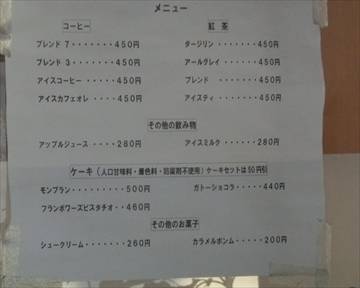 メニュー
コーヒー
ブレンド 7・・・・・・・450円
ブレンド 3・・・・・・・450円
アイスコーヒー ・・・・・450円
アイスカフェオレ ・・・・450円
紅 茶
ダージリン・・・・・450円
アールグレイ・・・・450円
ブレンド ・・・・・450円
アイスティ ・・・・450円
その他の飲み物
アップルジュース・・・・280円
アイスミルク・・・・280円
ケーキ(人口甘味料・着色料・防腐剤不使用)ケーキセットは50円引
モンブラン・・・・・・・500円
ガトーショコラ・・・・440円
フランボワーズピスタチオ・・460円
その他のお菓子
シュークリーム・・・・・260円
カラメルポンム・・・・200円